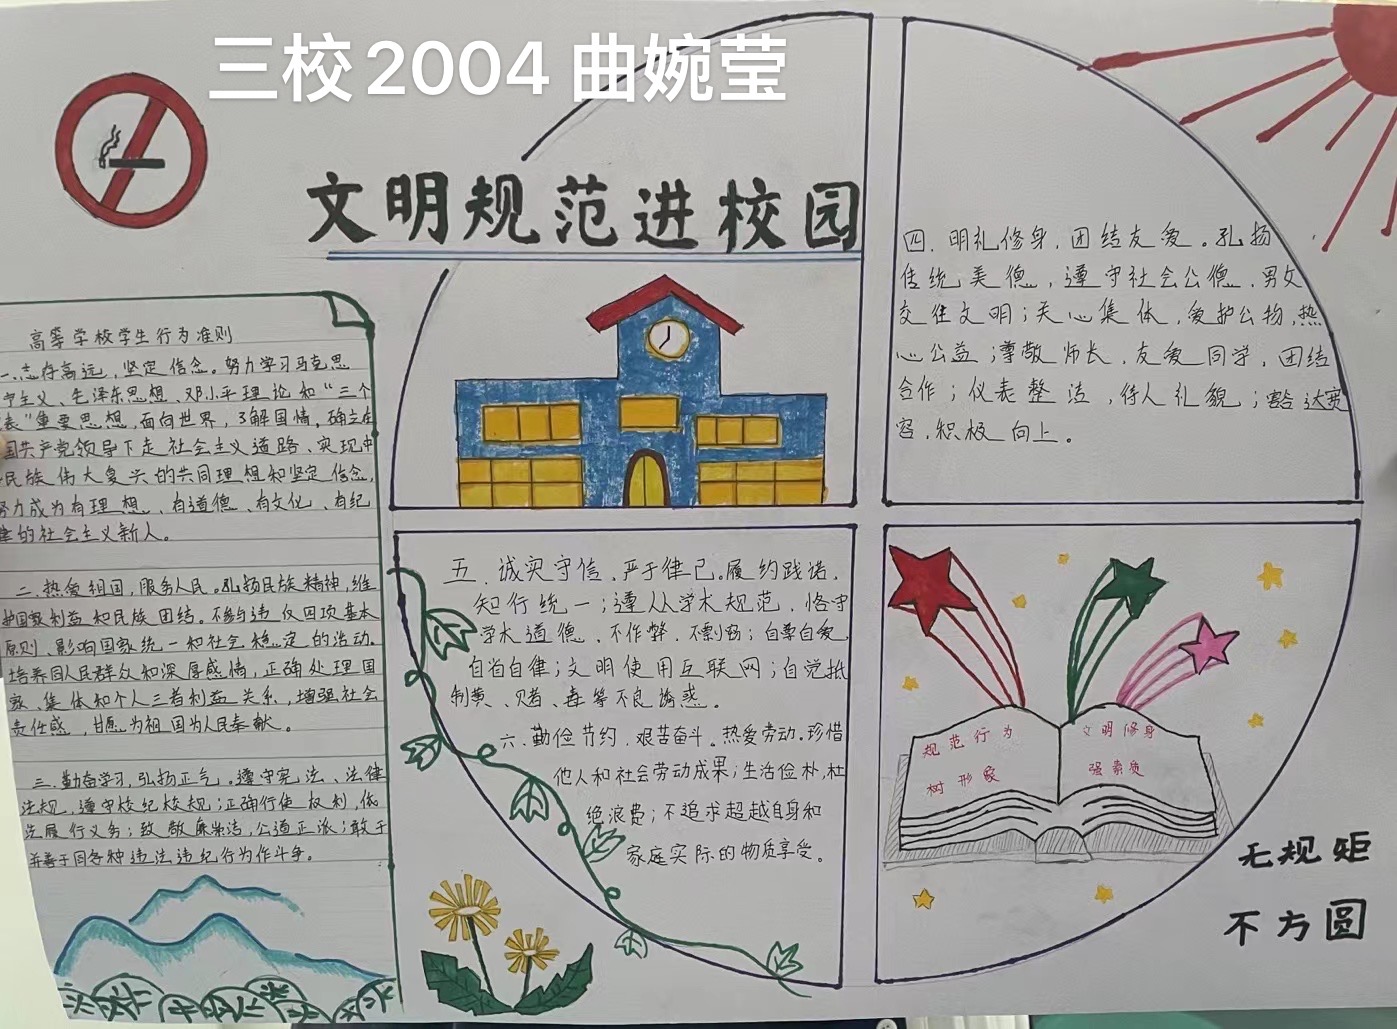 三校2004 曲婉莹
文明规范进校园
高等学校学生行为准则
一.志存高远，坚定信念。努力学习马克思
主义、毛泽东思想、邓小平理论和“三个
表”重要思想，面向世界，了解国情，确立在
国共产党领导下走社会主义道路、实现中
民族伟大复兴的共同理想和坚定信念，
努力成为有理想、有道德、有文化、有纪
律的社会主义新人。
二.热爱祖国，服务人民。弘扬民族精神，维
护国家利益和民族团结。不参与违反四项基本
原则、影响国家统一和社会稳定的活动。
培养同人民群众和深厚感情，正确处理国
家、集体和个人三者利益关系，增强社会
责任感，甘愿为祖国为人民奉献。
三.勤奋学习，弘扬正气。遵守宪法、法律
法规，遵守校纪校规；正确行使权利，依
法履行义务；敬廉崇洁，公道正派；敢于
并善于同各种违法违纪行为作斗争。
四.明礼修身，团结友爱。弘扬
传统美德，遵守社会公德，男女
交往文明；关心集体，爱护公物，热
心公益；尊敬师长，友爱同学，团结
合作；仪表整洁，待人礼貌；豁达宽
容，积极向上。
五.诚实守信，严于律己。履约践诺，
知行统一；遵从学术规范，恪守
学术道德，不作弊，不剽窃；自尊自爱
自省自律；文明使用互联网；自觉抵
制黄、赌、毒等不良诱惑。
六.勤俭节约，艰苦奋斗。热爱劳动，珍惜
他人和社会劳动成果；生活俭朴，杜
绝浪费；不追求超越自身和
家庭实际的物质享受。
规范行为
树形象
文明修身
强素质
无规矩
不方圆